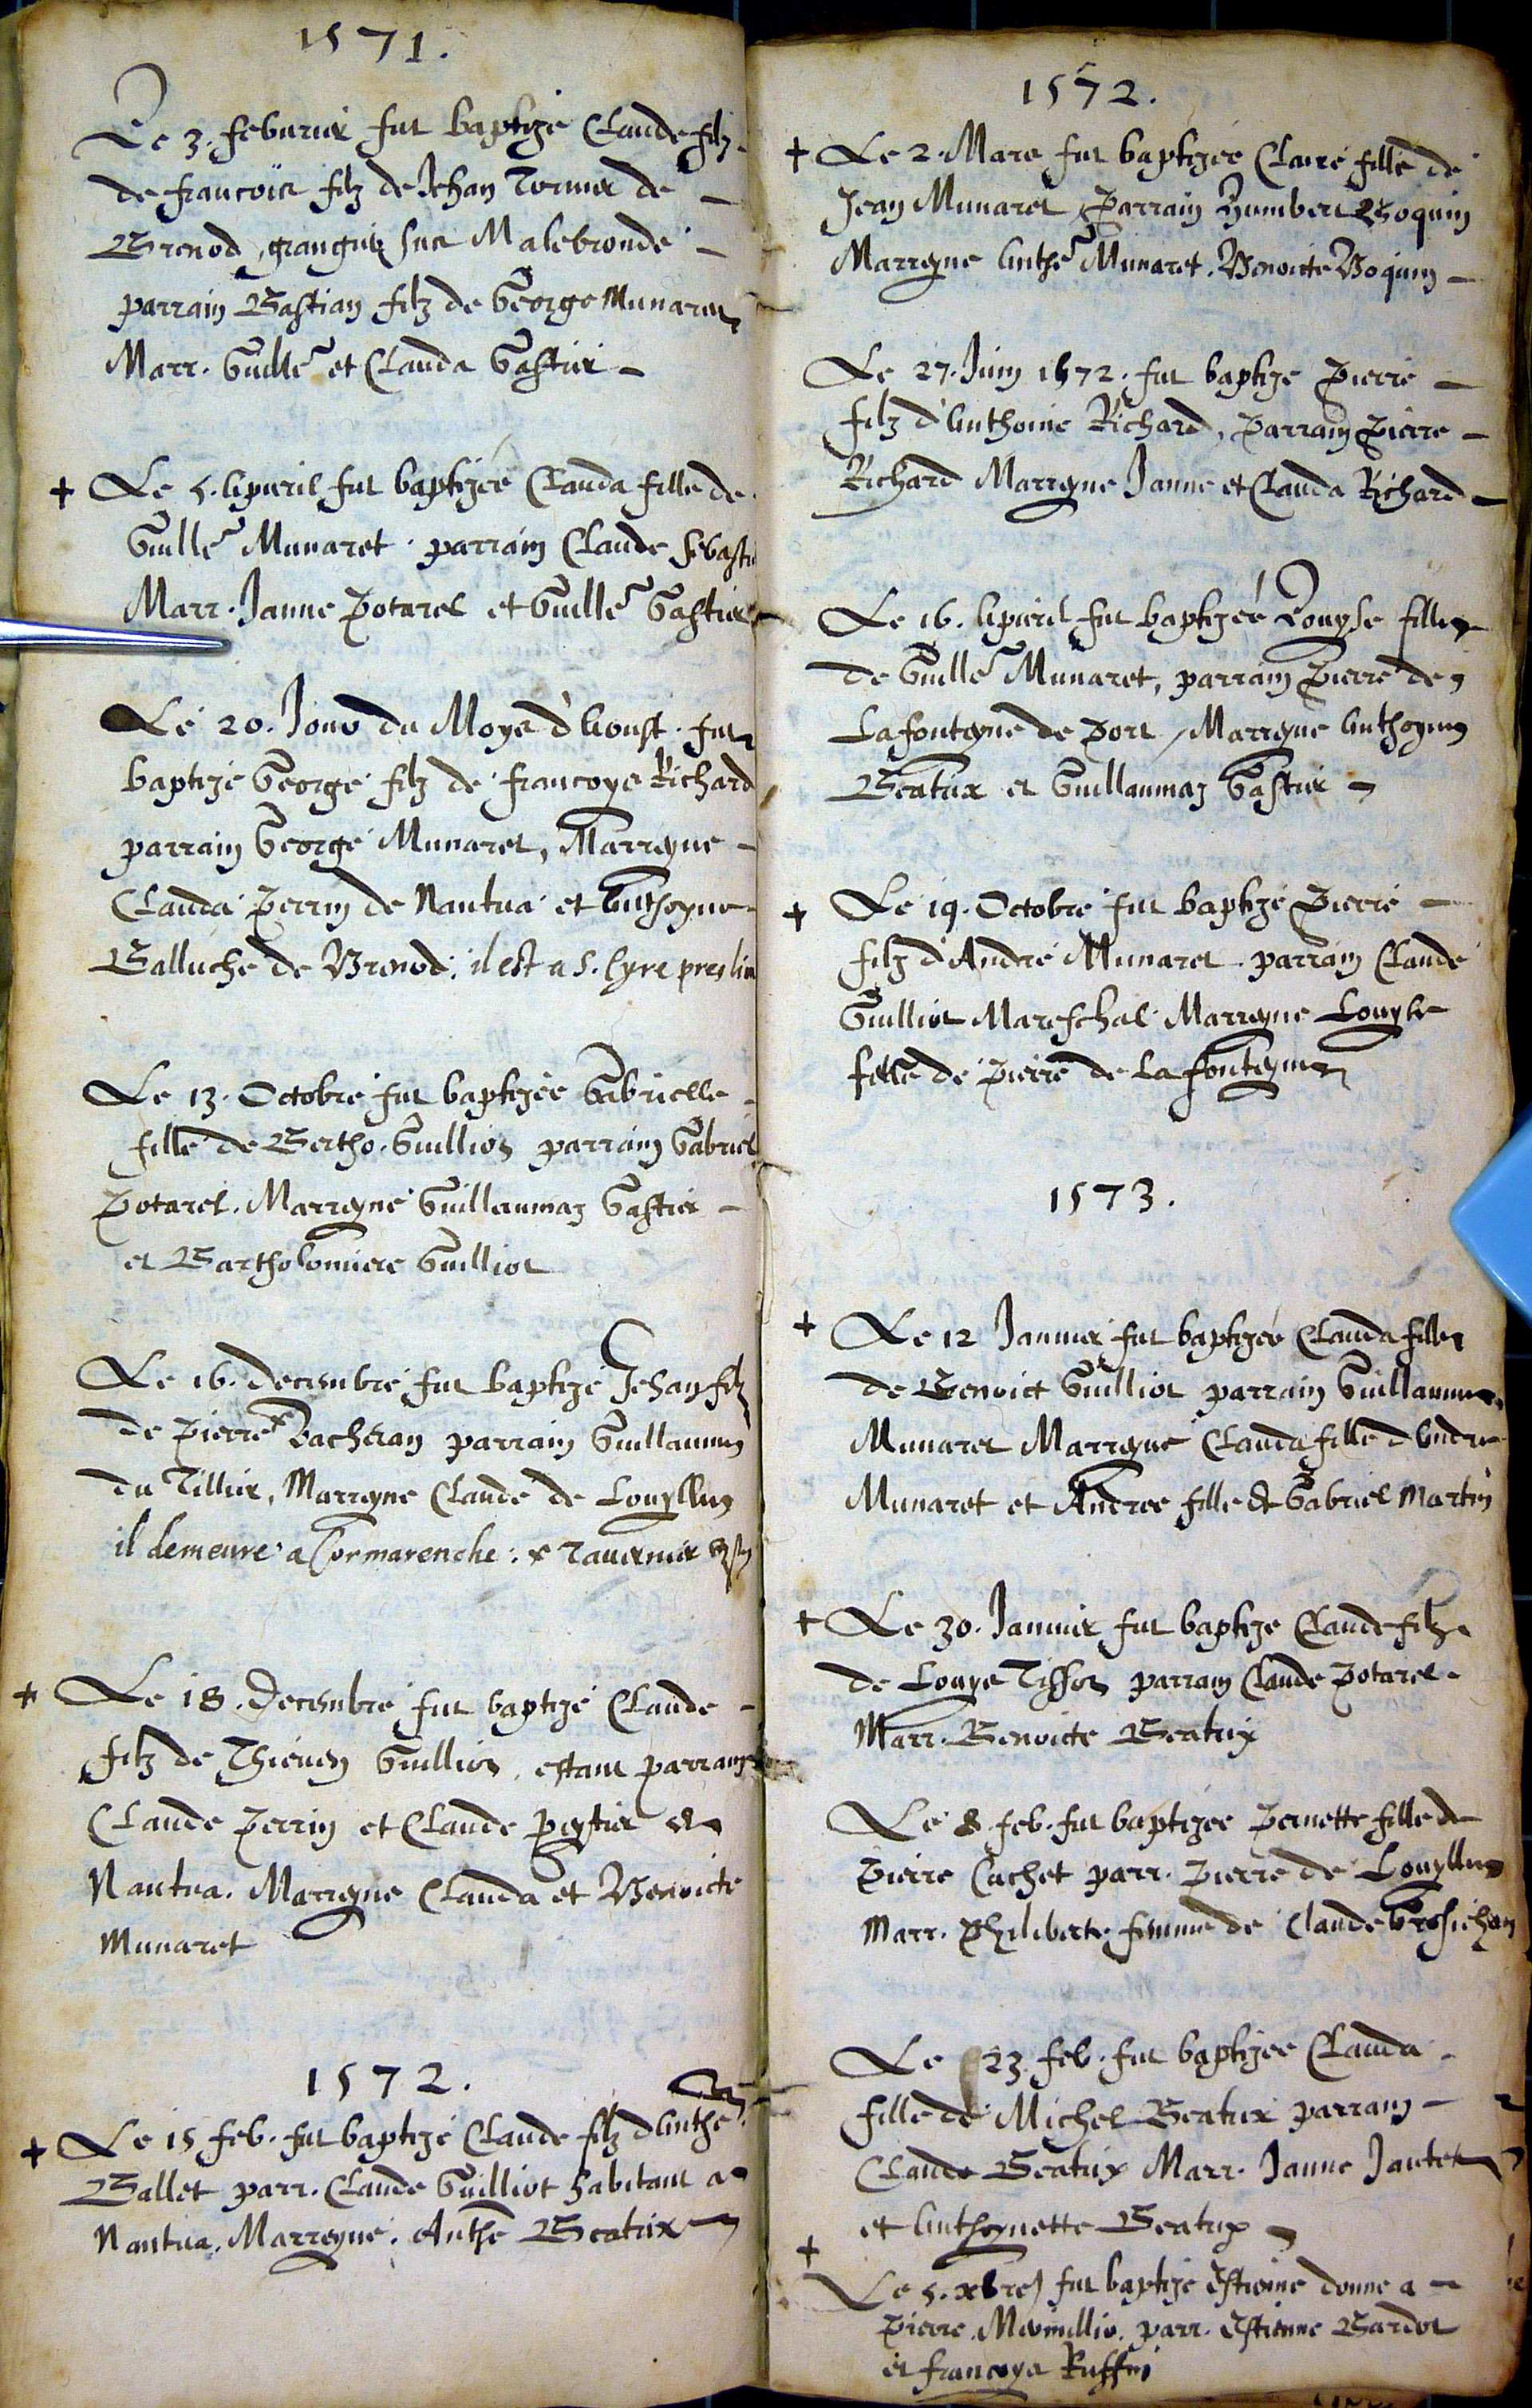 1571.
Le 3. feburier fut baptizé Claude filz
de francois filz de Jehan Tornier de
Brenod, grangier sus Malebronde
parrain Bastian filz de George Munaret
Marr. Guille et Clauda Gastier
+ Le 5. Apuril fut baptizée Clauda fille de
Guille Munaret. parrain Claude Sebasti
Marr. Janne Potarel et Guille Gastier
Le 20. Jour du Moys d'Aoust. fut
baptizé George filz de francoys Richard
parrain George Munaret, Marreyne
Clauda Perrin de Nantua et Anthoyne
Balluche de Brenod. il est a S. Cyre pres
Le 13. Octobre fut baptizée Gabrielle
fille de Bertho. Guilliot parrain Gabriel
Potarel. Marreyne Guillaumaz Gastier
et Bartholomiere Guilliot
Le 16. decembre fut baptizé Jehan filz
de Pierre x Bacheran parrain Guillaume
du Tillier, Marreyne Claude de Louyllin
il demeure a Cormarenche: x Tauernier
+ Le 18. decembre fut baptizé Claude
filz de Thieuen Guilliot, estant parrain
Claude Perrin et Claude de
Nantua. Marreyne Clauda et Benoicte
Munaret
1572.
+ Le 15 feb. fut baptizé Claude filz d'Anthe
Ballet parr. Claude Guilliot habitant a
Nantua. Marreyne. Anthe Beatrix
1572.
+ Le 2. Mars fut baptizée Claire fille de
Jean Munaret Parrain Humbert Boquin
Marreyne Anthe Munaret. Benoicte Boquin
Le 27. Juin 1572. fut baptizé Pierre
filz d'Anthoine Richard, Parrain Pierre
Richard Marreyne Janne et Clauda Richard
Le 16. Apuril fut baptizée Louyse fille
de Guille Munaret, parrain Pierre de
Lafonteyne de Port, Marreyne Anthoyne
Beatrix et Guillaumaz Gastier
+ Le 19. Octobre fut baptizé Pierre
filz d'André Munaret. parrain Claude
Guilliot Mareschal Marreyne Louyse
fille de Pierre de Lafonteyne
1573.
+ Le 12 Januier fut baptizée Clauda fille
de Benoict Guilliot parrain Guillaume
Munaret Marreyne Clauda fille d'Andre
Munaret et Andree fille de Gabriel Martin
+ Le 30. Januier fut baptize Claude filz
de Louys Tissot parrain Claude Potarel.
Marr. Benoicte Beatrix
Le 8. feb. fut baptizée Pernette fille de
Pierre Cachet parr. Pierre de Louyllin
Marr. Philiberte femme de Claude Grosiehan
Le 23. feb. fut baptizée Clauda
fille de Michel Beatrix parrain
Claude Beatrix Marr. Janne Jantet
et Anthoynette Beatrix
+ Le 5. xbre fut baptizé Estienne donne a
Pierre parr. Estienne Bardet
et francoyse Ruffin